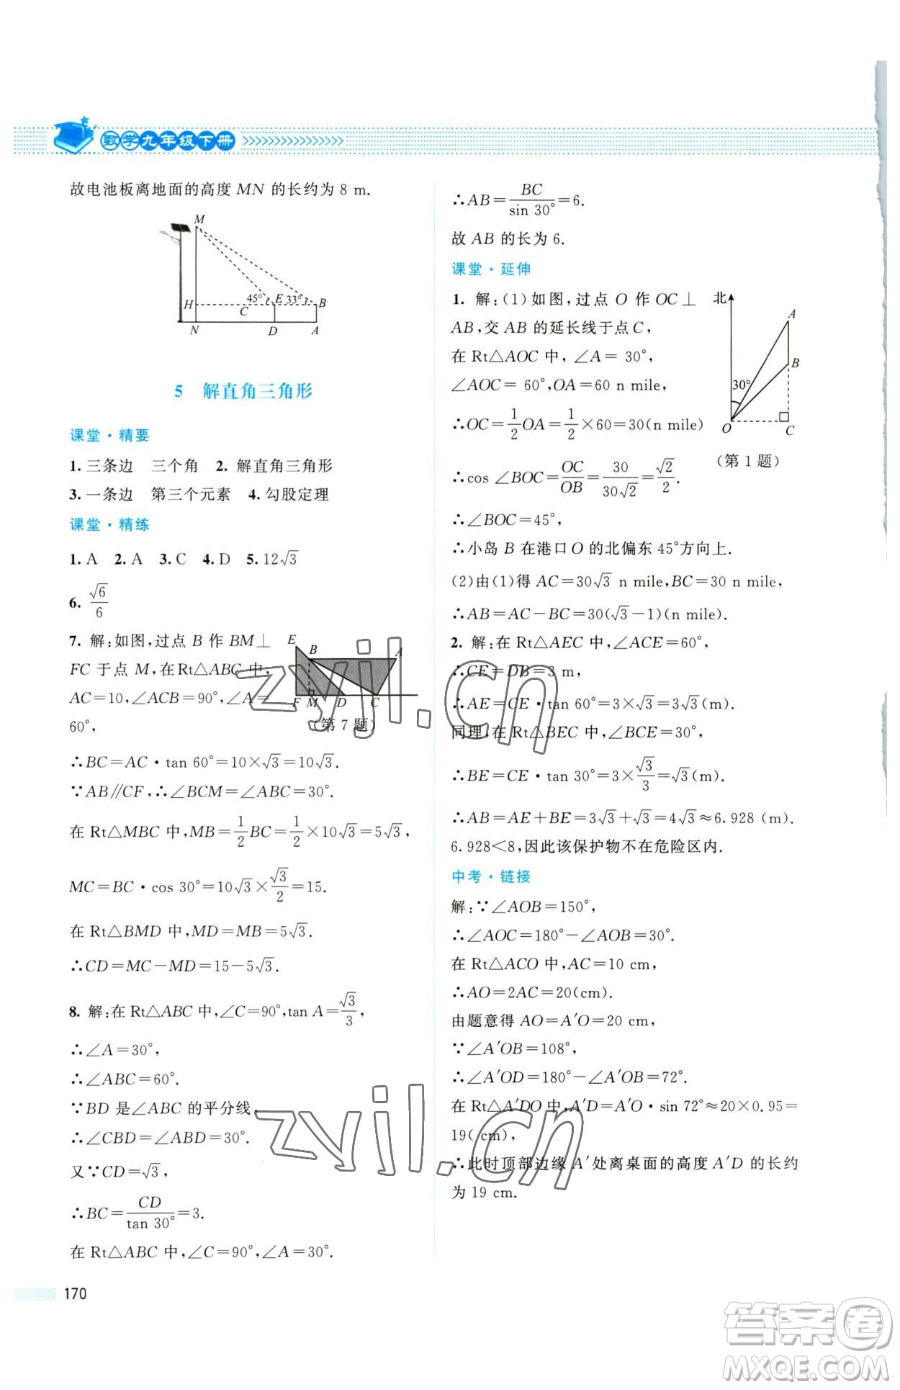 数学九年级下册
故电池板离地面的高度 MN 的长约为 8 m.
M
45° E 33° B
H C
N D A
5 解直角三角形
课堂·精要
1. 三条边 三个角 2. 解直角三角形
3. 一条边 第三个元素 4. 勾股定理
课堂·精练
1. A 2. A 3. C 4. D 5. 12√3
6. √6/6
7. 解:如图,过点 B 作 BM⊥
FC 于点 M,在Rt△ABC 中,
AC=10,∠ACB=90°,∠A=
60°,
E B A
F M D C
(第 7 题)
∴BC=AC·tan 60°=10×√3=10√3.
∵AB∥CF,∴∠BCM=∠ABC=30°.
在 Rt△MBC 中,MB=1/2BC=1/2×10√3=5√3,
MC=BC·cos 30°=10√3×√3/2=15.
在 Rt△BMD 中,MD=MB=5√3.
∴CD=MC-MD=15-5√3.
8. 解:在 Rt△ABC 中,∠C=90°,tan A=√3/3,
∴∠A=30°,
∴∠ABC=60°.
∵BD 是∠ABC 的平分线,
∴∠CBD=∠ABD=30°.
又∵CD=√3,
∴BC=CD/tan 30°=3.
在 Rt△ABC 中,∠C=90°,∠A=30°,
170
∴AB=BC/sin 30°=6.
故 AB 的长为 6.
课堂·延伸
1. 解:(1)如图,过点 O 作 OC⊥
AB,交 AB 的延长线于点C,
在 Rt△AOC 中,∠A=30°,
∠AOC=60°,OA=60 n mile,
∴OC=1/2OA=1/2×60=30(n mile).
北
A
B
30°
O C
(第 1 题)
∴cos ∠BOC=OC/OB=30/30√2=√2/2.
∴∠BOC=45°,
∴小岛 B 在港口O 的北偏东 45°方向上.
(2)由(1)得 AC=30√3 n mile,BC=30 n mile,
∴AB=AC-BC=30(√3-1)(n mile).
2. 解:在 Rt△AEC 中,∠ACE=60°,
∴CE=DB=3 m,
∴AE=CE·tan 60°=3×√3=3√3(m).
同理,在 Rt△BEC 中,∠BCE=30°,
∴BE=CE·tan 30°=3×√3/3=√3(m),
∴AB=AE+BE=3√3+√3=4√3≈6.928(m).
6.928<8,因此该保护物不在危险区内.
中考·链接
解:∵∠AOB=150°,
∴∠AOC=180°-∠AOB=30°.
在 Rt△ACO 中,AC=10 cm,
∴AO=2AC=20(cm).
由题意得 AO=A′O=20 cm,
∵∠A′OB=108°,
∴∠A′OD=180°-∠A′OB=72°.
在 Rt△A′DO 中,A′D=A′O·sin 72°≈20×0.95=
19(cm),
∴此时顶部边缘 A′处离桌面的高度 A′D 的长约
为 19 cm.
zyjl.cn
zyjl.cn
答案圈
MXQE.COM